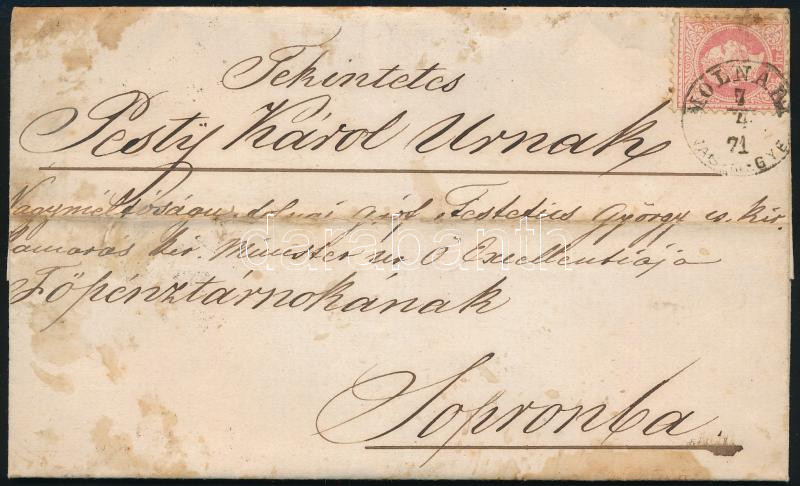 Tekintetes
MOLNÁRI
7
4
71
VAS
Pesty Károl Urnak
Nagyméltóságu tolnai gróf Festetics György cs. Kir.
kamarás kir. Minister úr Ő Excellentiája
Főpénztárnokának
darabanth
Sopronba.